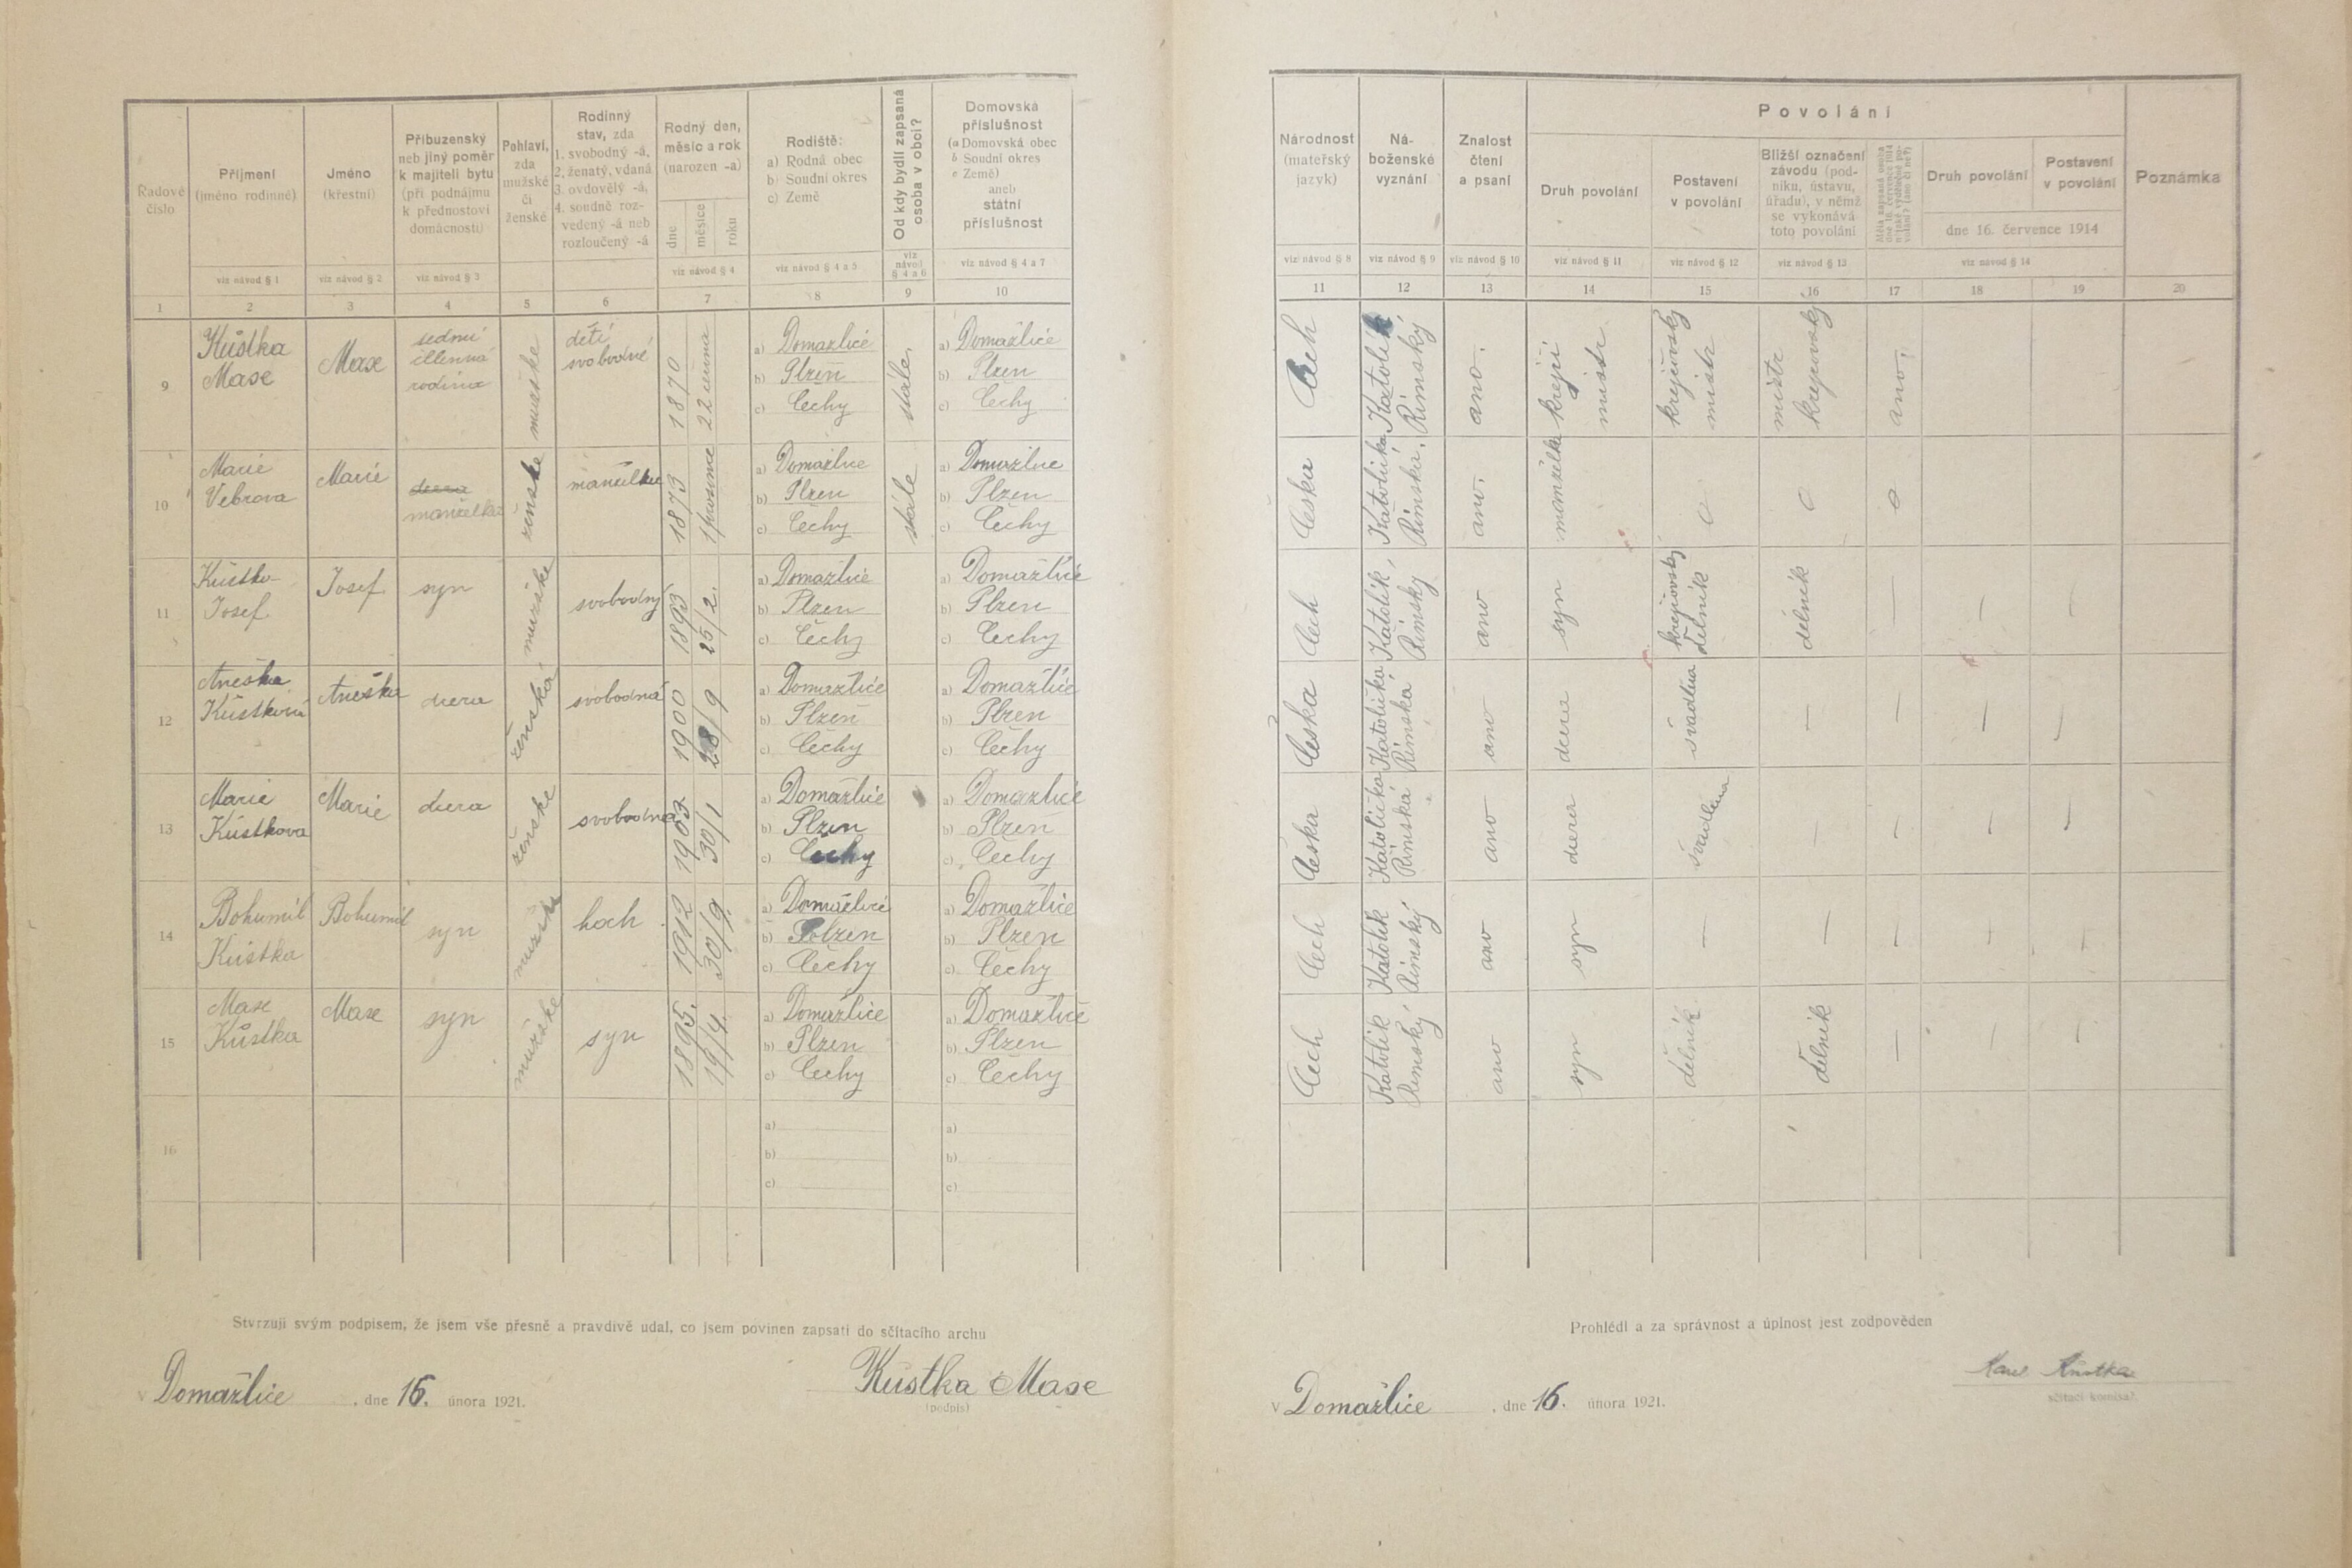 Řadové
číslo
Příjmení
(jméno rodinné)
viz návod § 1
Jméno
(křestní)
viz návod § 2
Příbuzenský
neb jiný poměr
k majiteli bytu
(při podnájmu
k přednostovi
domácnosti)
viz návod § 3
Pohlaví,
zda
mužské
či
ženské
Rodinný
stav, zda
1. svobodný -á,
2. ženatý, vdaná
3. ovdovělý -á,
4. soudně roz-
vedený -á neb
rozloučený -á
Rodný den,
měsíc a rok
(narozen -a)
dne
měsíce
roku
viz návod § 4
Rodiště:
a) Rodná obec
b) Soudní okres
c) Země
viz návod § 4 a 5
Od kdy bydlí zapsaná
osoba v obci?
viz
návod
§ 4 a 6
Domovská
příslušnost
(a Domovská obec
b Soudní okres
c Země)
aneb
státní
příslušnost
viz návod § 4 a 7
1 2 3 4 5 6 7 8 9 10
9
Kůstka
Maxe
Maxe
sedmi
členná
rodina
mužske
děti
svobodné
1870
22 června
a) Domažlicé
b) Plzeň
c) Čechy
stále.
a) Domažlicé
b) Plzen
c) Čechy
10
Marie
Vebrova
Marié
manželka
ženske
manželka
1873
1 prosince
a) Domažlice
b) Plzen
c) Čechy
stále
a) Domažlice
b) Plzen
c) Čechy
11
Kůstka
Josef
Josef
syn
mužske
svobodný
1893
25/2.
a) Domažlicé
b) Plzen
c) Čechy
a) Domažlicé
b) Plzen
c) Čechy
12
Aneška
Kůstková
Aneška
dcera
ženska
svobodná
1900
28/9
a) Domažlice
b) Plzen
c) Čechy
a) Domažlice
b) Plzen
c) Čechy
13
Marie
Kůstkova
Marie
dcera
ženske
svobodná
1903
30/1
a) Domažlice
b) Plzen
c) Čechy
a) Domažlice
b) Plzen
c) Čechy
14
Bohumil
Kůstka
Bohumil
syn
mužske
hoch
1912
30/9.
a) Domažlicé
b) Polzen
c) Čechy
a) Domažlice
b) Plzen
c) Čechy
15
Maxe
Kůstka
Maxe
syn
mužske
syn
1895.
19/4.
a) Domažlice
b) Plzen
c) Čechy
a) Domažlice
b) Plzen
c) Čechy
16
a)
b)
c)
a)
b)
c)
Stvrzuji svým podpisem, že jsem vše přesně a pravdivě udal, co jsem povinen zapsati do sčítacího archu
V Domažlice, dne 16. února 1921.
Kůstka Maxe
(podpis)
Národnost
(mateřský
jazyk)
viz návod § 8
Ná-
boženské
vyznání
viz návod § 9
Znalost
čtení
a psaní
viz návod § 10
Povolání
Druh povolání
viz návod § 11
Postavení
v povolání
viz návod § 12
Bližší označení
závodu (pod-
niku, ústavu,
úřadu), v němž
se vykonává
toto povolání
viz návod § 13
Měla zapsaná osoba
dne 16. července 1914
Druh povolání
Postavení
v povolání
dne 16. července 1914
viz návod § 14
Poznámka
11 12 13 14 15 16 17 18 19 20
Čech
Katolík
Římský
ano.
krejčí
mistr
krejčovský
mistr
mistr
krejčovský
ano.
Česka
Katolička
Římská.
ano.
manželka
0
0
0
Čech
Katolík,
Římský
ano
syn
krejčovsky
dělnik
dělnik
— — —
Česka
Katolička
Římská
ano
dcera
švadlna
— — — —
Česka
Katolička
Římská
ano
dcera
švadlena
— — — —
Čech
Katolík
Římský
ano
syn
— — — — —
Čech
Katolik
Římský
ano
syn
dělník
dělnik
— — —
Prohlédl a za správnost a úplnost jest zodpověden
V Domažlice, dne 16. února 1921.
Karel Kůstka
sčítací komisař.